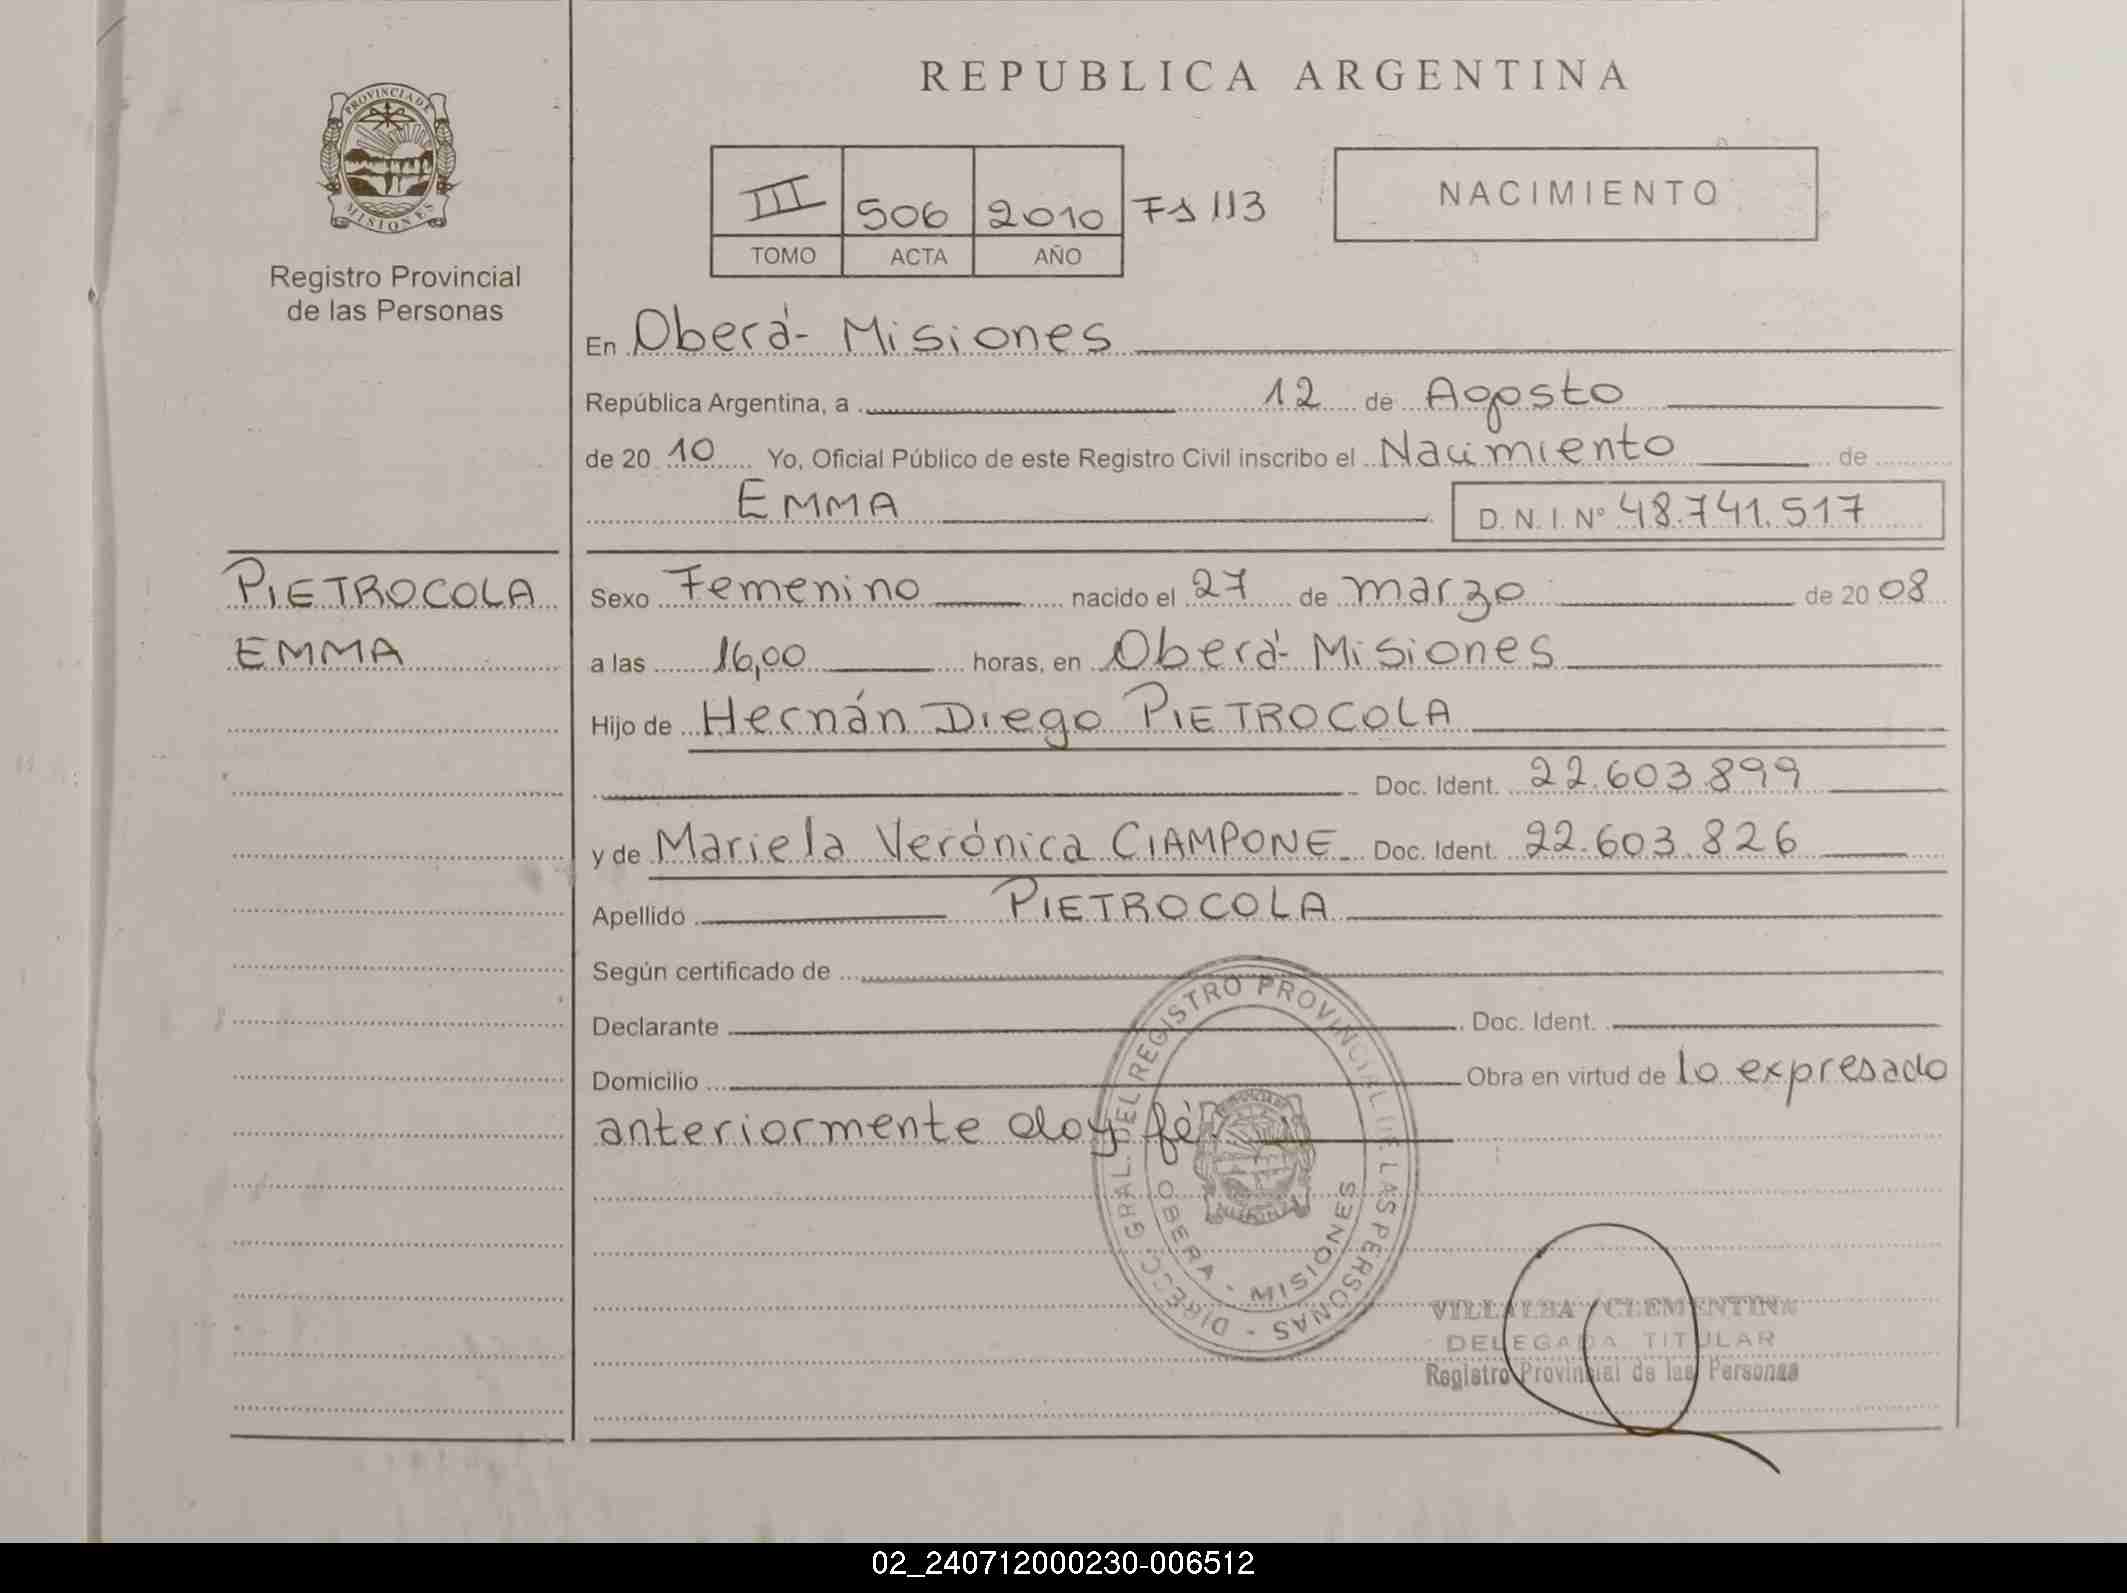 REPUBLICA ARGENTINA
PROVINCIA DE
MISIONES
Registro Provincial
de las Personas
III 506 2010 Fs 113
TOMO ACTA AÑO
NACIMIENTO
En Oberá- Misiones
República Argentina, a 12 de Agosto
de 20 10 Yo, Oficial Público de este Registro Civil inscribo el Nacimiento de
EMMA D.N.I. Nº 48.741.517
PIETROCOLA
EMMA
Sexo Femenino nacido el 27 de marzo de 20 08
a las 16,00 horas, en Oberá- Misiones
Hijo de Hernán Diego PIETROCOLA
Doc. Ident. 22.603.899
y de Mariela Verónica CIAMPONE Doc. Ident. 22.603.826
Apellido PIETROCOLA
Según certificado de
Declarante Doc. Ident.
Domicilio Obra en virtud de lo expresado
anteriormente doy fé.
DIRECC. GRAL. DEL REGISTRO PROVINCIAL DE LAS PERSONAS -
OBERA - MISIONES
VILLALBA CLEMENTINA
DELEGADA TITULAR
Registro Provincial de las Personas
02_240712000230-006512